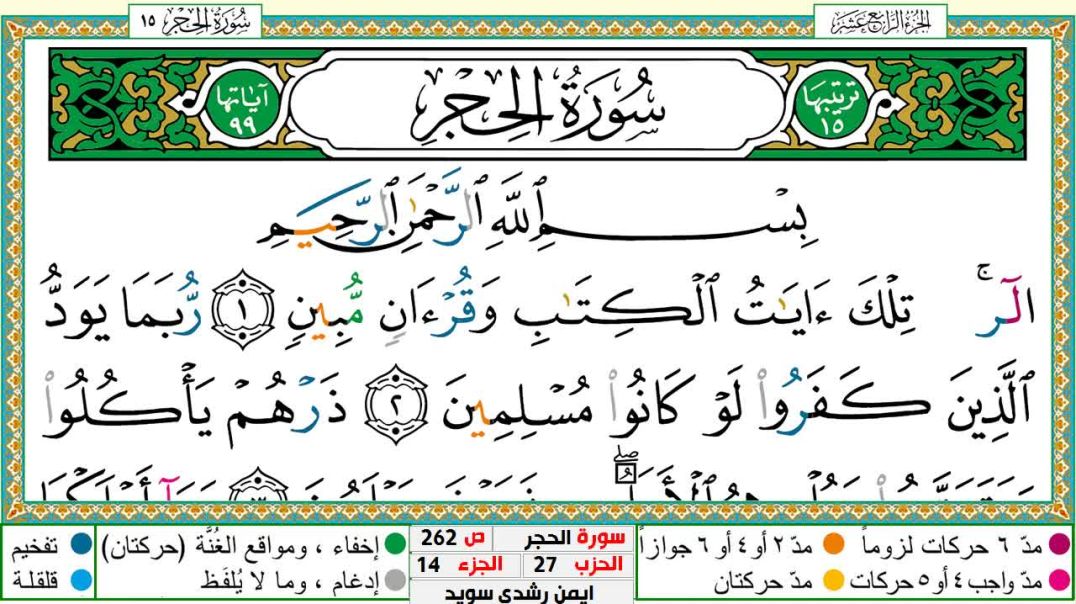 الجزء الرابع عشر
سورة الحجر ١٥
ترتيبها ١٥
سُورَةُ الحِجر
آياتها ٩٩
بِسْمِ اللَّهِ الرَّحْمَٰنِ الرَّحِيمِ
الٓرۚ تِلْكَ ءَايَٰتُ ٱلْكِتَٰبِ وَقُرْءَانٍ مُّبِينٍ ١ رُّبَمَا يَوَدُّ
ٱلَّذِينَ كَفَرُوا۟ لَوْ كَانُوا۟ مُسْلِمِينَ ٢ ذَرْهُمْ يَأْكُلُوا۟
مدّ ٦ حركات لزوماً
مدّ ٢ أو ٤ أو ٦ جوازاً
مدّ واجب ٤ أو ٥ حركات
مدّ حركتان
سورة الحجر ص 262
الحزب 27 الجزء 14
ايمن رشدى سويد
إخفاء ، ومواقع الغُنَّة (حركتان)
إدغام ، وما لا يُلفَظ
تفخيم
قلقلة